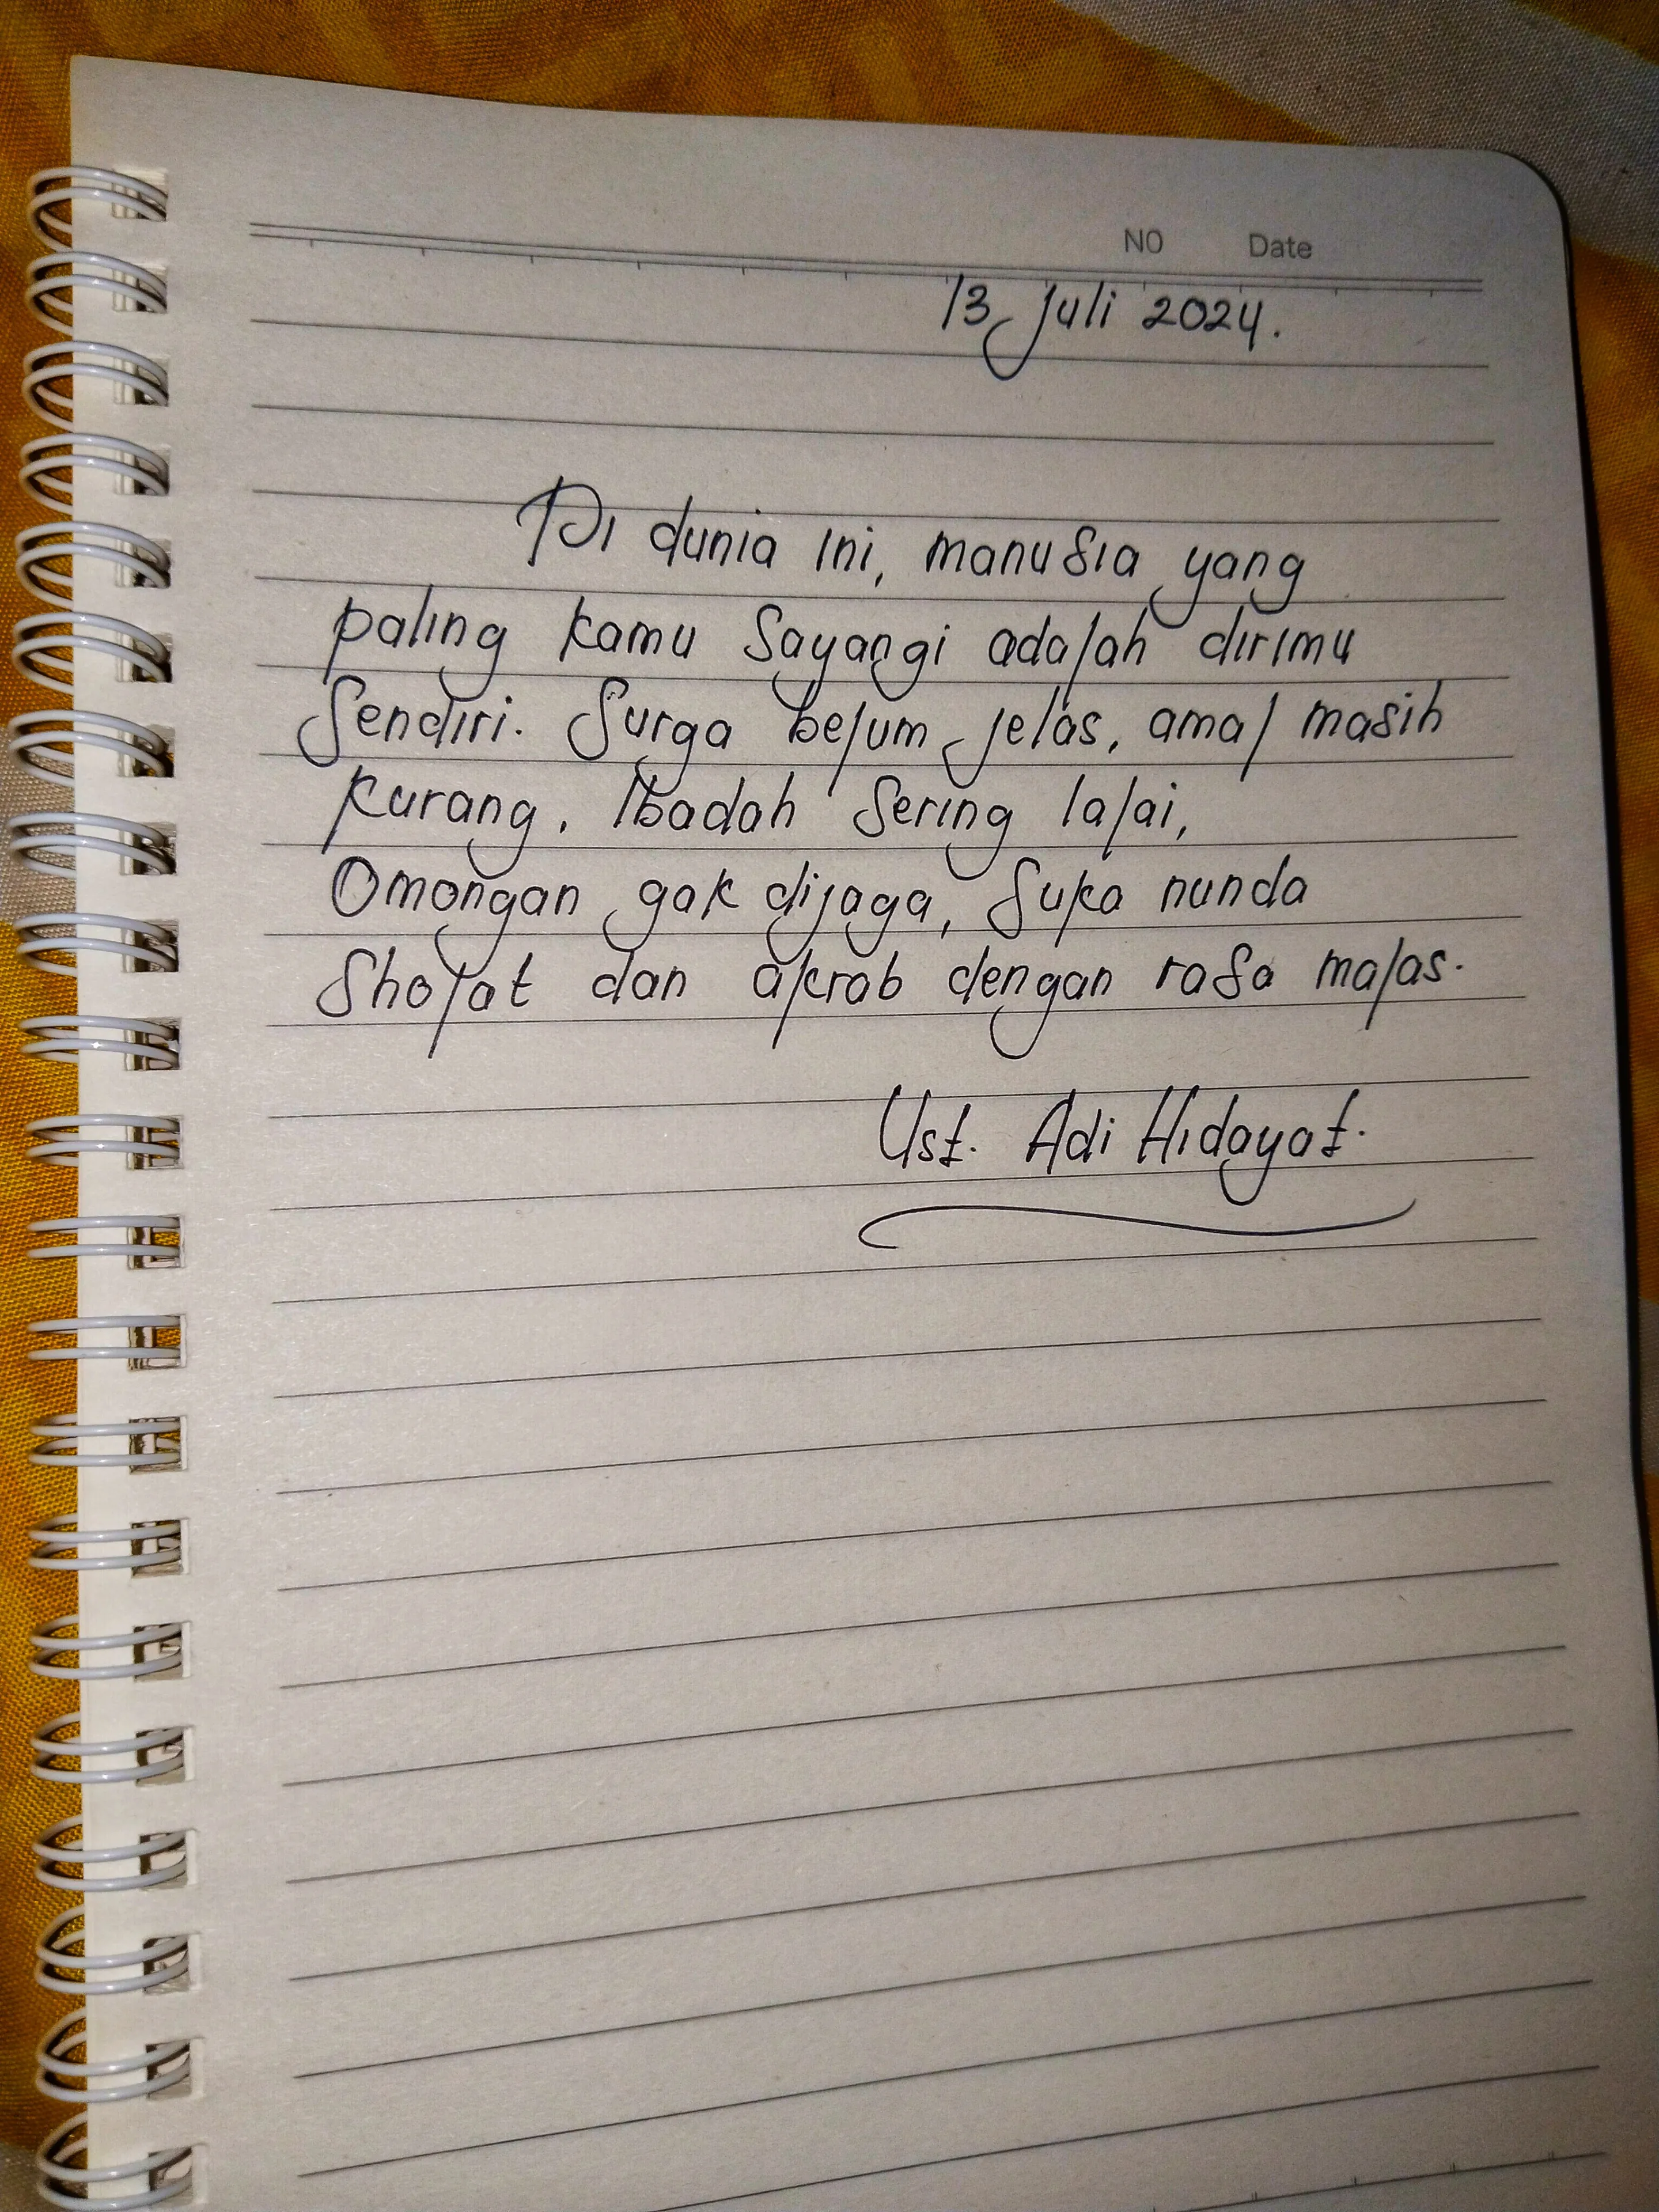 NO Date
13 Juli 2024.
Di dunia ini, manusia yang
paling kamu sayangi adalah dirimu
sendiri. Surga belum jelas, amal masih
kurang. Ibadah sering lalai,
Omongan gak dijaga, suka nunda
sholat dan akrab dengan rasa malas.
Ust. Adi Hidayat.